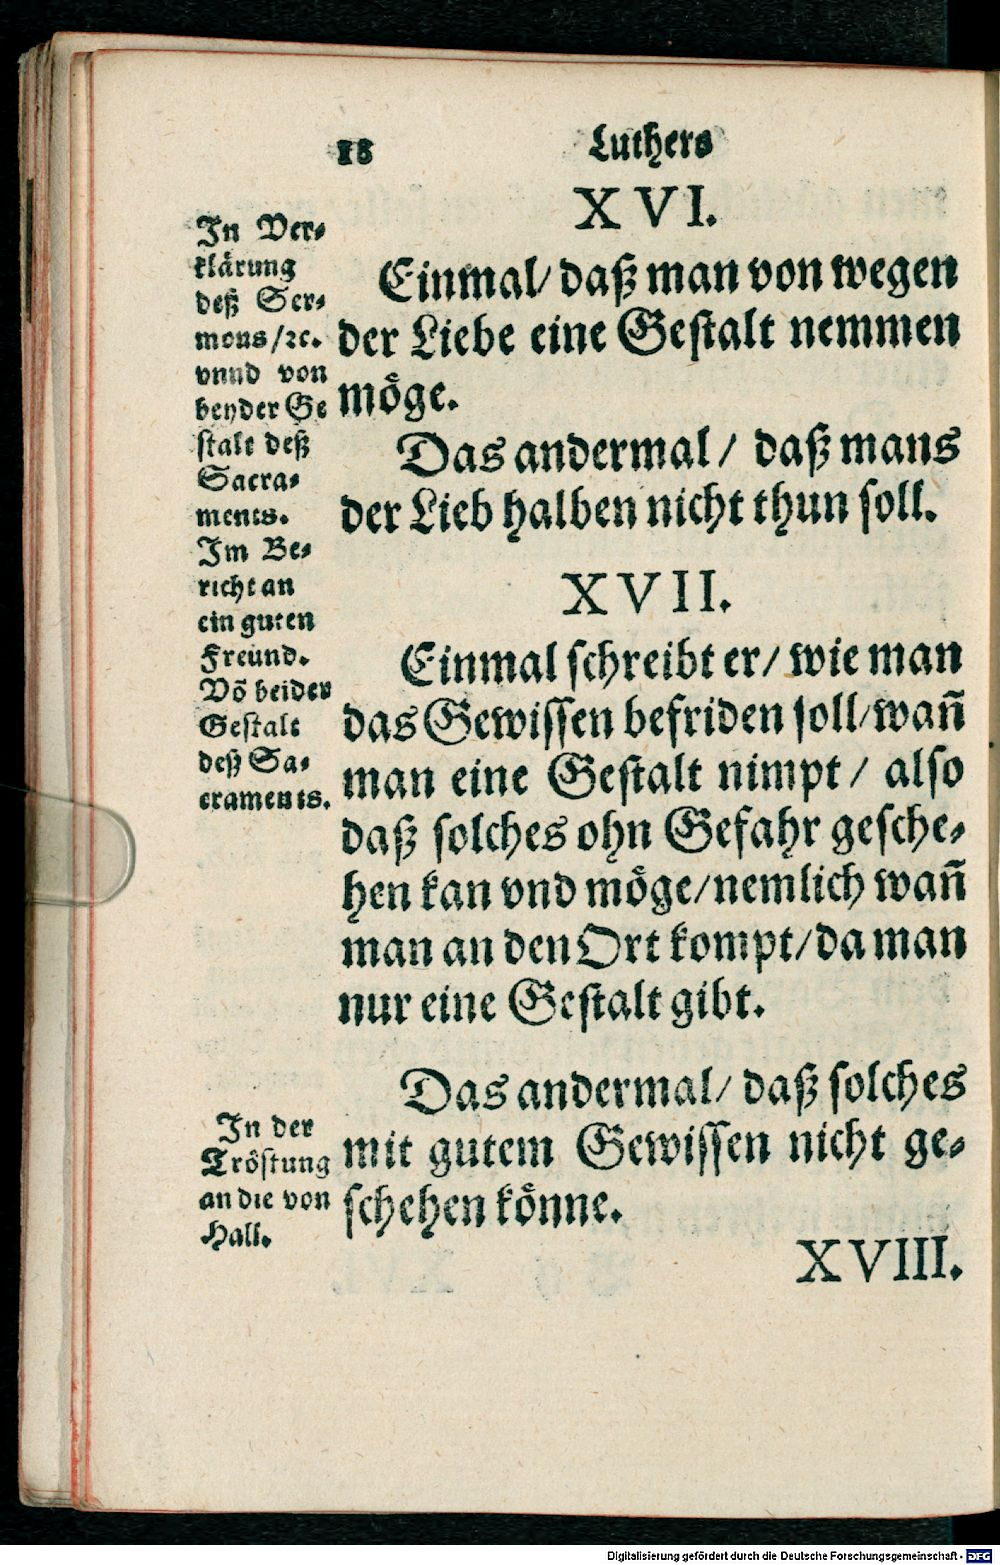 18
Luthers
XVI.
Einmal/ daß man von wegen
der Liebe eine Gestalt nemmen
möge.
Das andermal/ daß mans
der Lieb halben nicht thun soll.
XVII.
Einmal schreibt er/ wie man
das Gewissen befriden soll/ wañ
man eine Gestalt nimpt/ also
daß solches ohn Gefahr gesche-
hen kan vnd möge/ nemlich wañ
man an den Ort kompt/ da man
nur eine Gestalt gibt.
Das andermal/ daß solches
mit gutem Gewissen nicht ge-
schehen könne.
XVIII.
In Ver-
klärung
deß Ser-
mons/ ꝛc.
vnnd von
beyder Ge
stalt deß
Sacra-
ments.
Im Be-
richt an
ein guten
Freund.
Võ beider
Gestalt
deß Sa-
craments.
In der
Tröstung
an die von
Hall.
Digitalisierung gefördert durch die Deutsche Forschungsgemeinschaft - DFG